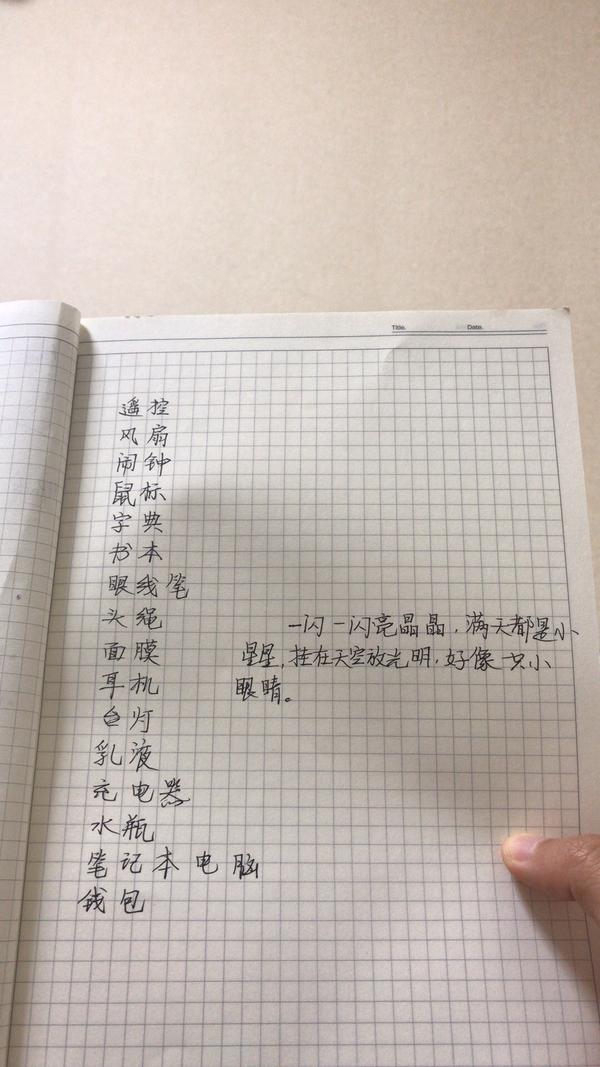 Title. Date.
遥控
风扇
闹钟
鼠标
字典
书本
眼线笔
头绳
面膜
耳机
台灯
乳液
充电器
水瓶
笔记本电脑
钱包
一闪一闪亮晶晶,满天都是小
星星,挂在天空放光明,好像一只小
眼睛。